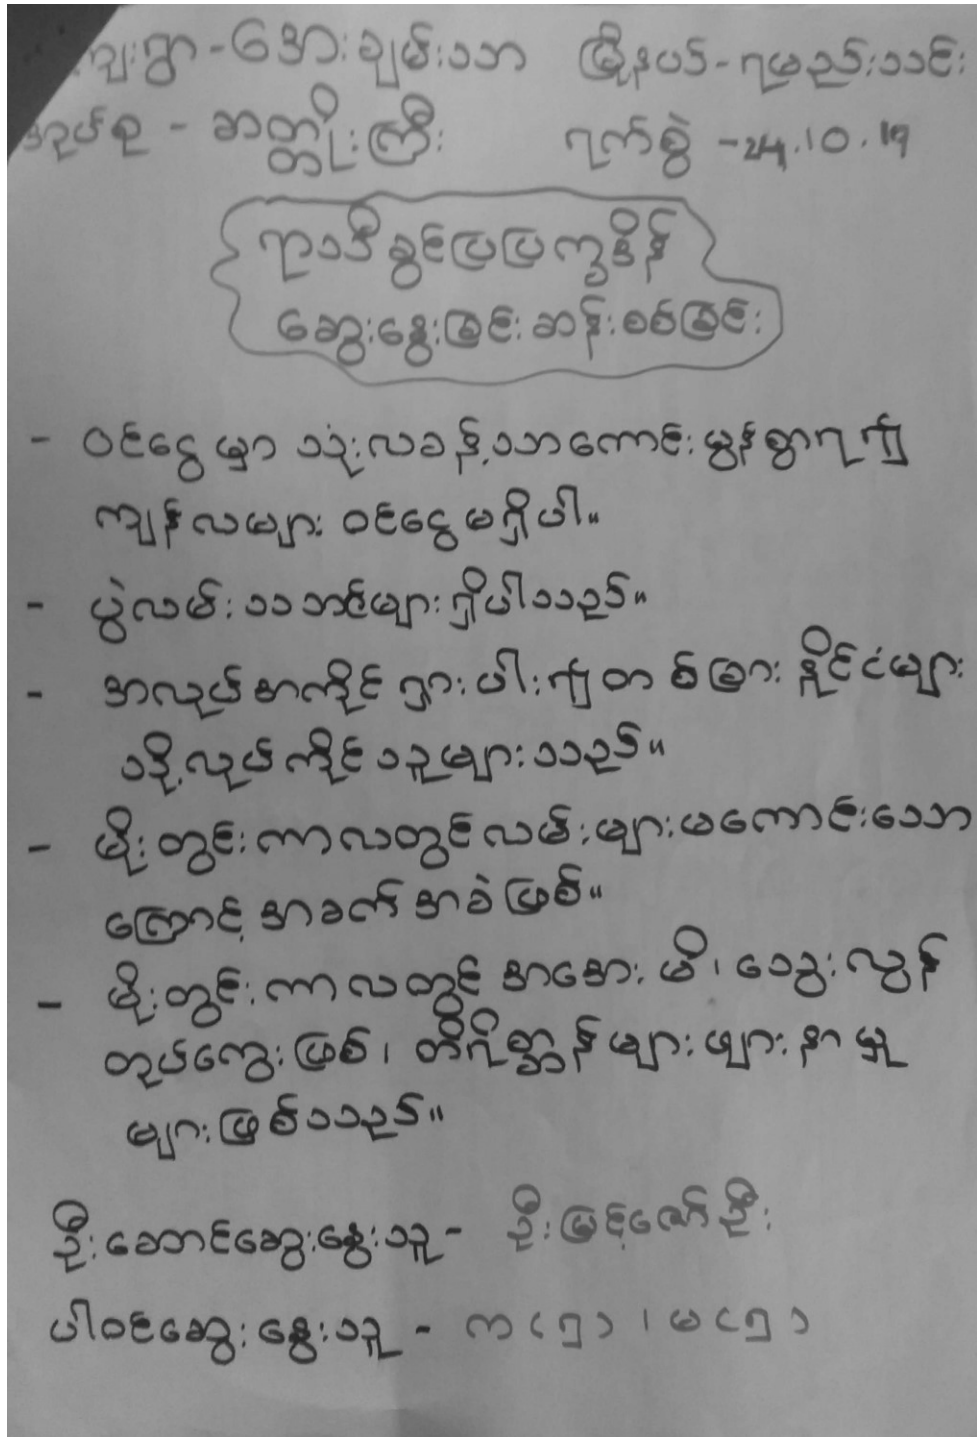 ကျေးရွာ - အေးချမ်းသာ မြို့နယ် - ရမည်းသင်း
အုပ်စု - ဆတ္တိုးကြီး ရက်စွဲ - ၁၇.10.19
ရာသီခွင်ပြပြက္ခဒိန်
ဆွေးနွေးခြင်းဆန်းစစ်ခြင်း
- ဝင်ငွေမှာ သုံးလခန့်သာကောင်းမွန်စွာရ၍
ကျန်လများ ဝင်ငွေမရှိပါ။
- ပွဲလမ်းသဘင်များရှိပါသည်။
- အလုပ်အကိုင်ရှားပါး၍တစ်ခြားနိုင်ငံများ
သို့လုပ်ကိုင်သူများသည်။
- မိုးတွင်းကာလတွင်လမ်းများမကောင်းသော
ကြောင့်အခက်အခဲဖြစ်။
- မိုးတွင်းကာလတွင် အအေးမိ၊ သွေးလွန်
တုပ်ကွေးဖြစ်၊ တိရိစ္ဆာန်များဖျားနာမှု
များဖြစ်သည်။
ဦးဆောင်ဆွေးနွေးသူ - ဦးမြင့်ဇော်ဦး
ပါဝင်ဆွေးနွေးသူ - က(၅)၊ မ(၅)